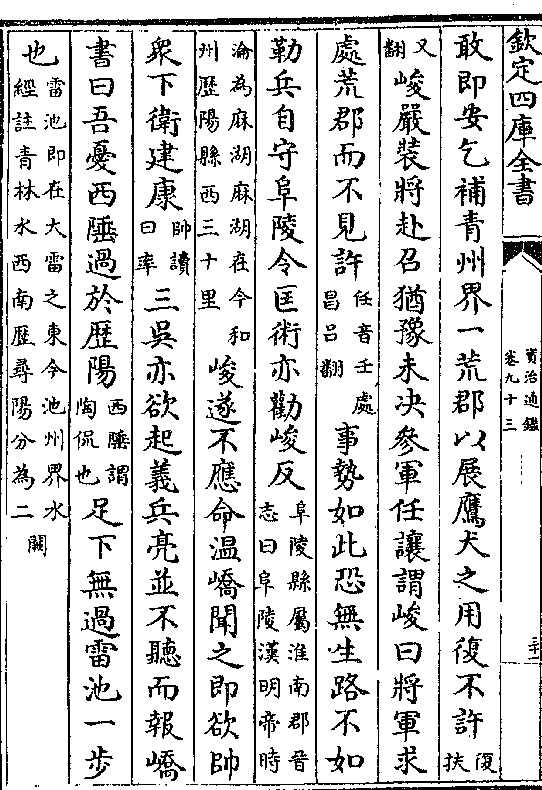 欽定四庫全書
資治通鑑
卷九十三
敢即安乞補青州界一荒郡以展鷹犬之用復不許復扶
又翻峻嚴裝將赴召猶豫未決參軍任讓謂峻曰將軍求
處荒郡而不見許任音壬處昌呂翻事勢如此恐無生路不如
勒兵自守阜陵令匡術亦勸峻反阜陵縣屬淮南郡晉志曰阜陵漢明帝時
淪為麻湖麻湖在今和州歷陽縣西三十里峻遂不應命溫嶠聞之即欲帥
衆下衛建康帥讀曰率三吳亦欲起義兵亮並不聽而報嶠
書曰吾憂西陲過於歷陽西陲謂陶侃也足下無過雷池一步
也雷池即在大雷之東今池州界水經註青林水西南歷尋陽分為二闕